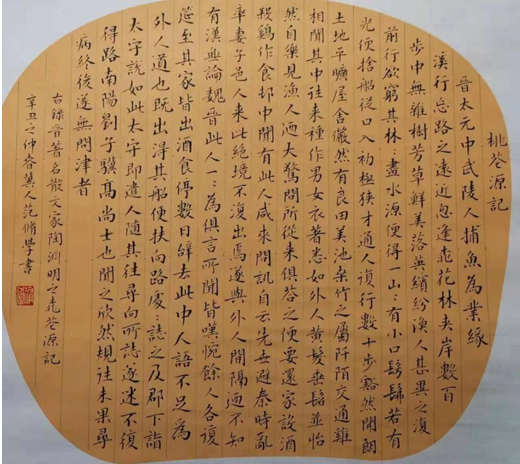 桃花源記
晉太元中武陵人捕魚為業緣
溪行忘路之遠近忽逢桃花林夾岸數百
步中無雜樹芳草鮮美落英繽紛漁人甚異之復
前行欲窮其林〻盡水源便得一山〻有小口髣髴若有
光便捨船從口入初極狹才通人復行數十步豁然開朗
土地平曠屋舍儼然有良田美池桑竹之屬阡陌交通雞
相聞其中往來種作男女衣著悉如外人黃髮垂髫並怡
然自樂見漁人迺大驚問所從來俱答之便要還家設酒
殺鷄作食邨中聞有此人咸來問訊自云先世避秦時亂
率妻子邑人來此絕境不復出焉遂與外人間隔迺不知
有漢無論魏晉此人一〻為俱言所聞皆嘆惋餘人各復
延至其家皆出酒食停數日辭去此中人語不足為
外人道也既出得其船便扶向路處〻誌之及郡下詣
太守說如此太守即遣人隨其往尋向所誌遂迷不復
得路南陽劉子驥高尚士也聞之欣然規往未果尋
病終後遂無問津者
右錄晉著名散文家陶淵明之桃花源記
辛丑之仲春冀人范脩學書